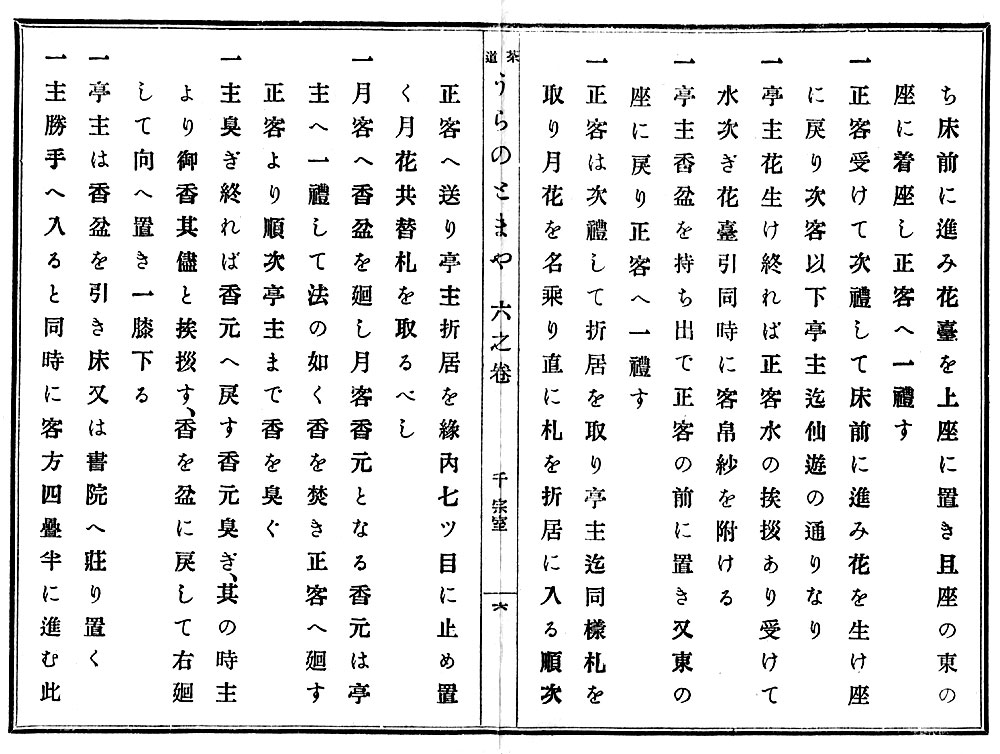 ち床前に進み花臺を上座に置き且座の東の
座に着座し正客へ一禮す
一正客受けて次禮して床前に進み花を生け座
に戻り次客以下亭主迄仙遊の通りなり
一亭主花生け終れば正客水の挨拶あり受けて
水次ぎ花臺引同時に客帛紗を附ける
一亭主香盆を持ち出で正客の前に置き又東の
座に戻り正客へ一禮す
一正客は次禮して折居を取り亭主迄同樣札を
取り月花を名乘り直に札を折居に入る順次
茶道
うらのとまや 六之卷
千宗室
六
正客へ送り亭主折居を緣內七ツ目に止め置
く月花共替札を取るべし
一月客へ香盆を廻し月客香元となる香元は亭
主へ一禮して法の如く香を焚き正客へ廻す
正客より順次亭主まで香を臭ぐ
一主臭ぎ終れば香元へ戻す香元臭ぎ、其の時主
より御香其儘と挨拶す、香を盆に戻して右廻
して向へ置き一膝下る
一亭主は香盆を引き床又は書院へ莊り置く
一主勝手へ入ると同時に客方四疊半に進む此